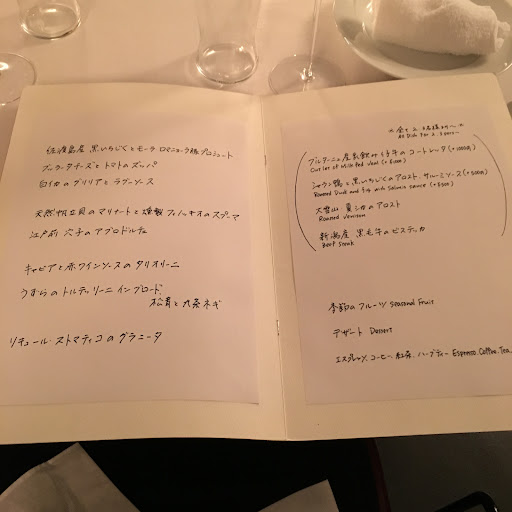 佐渡島産 黒いちじくとモーラ ロマニョーラ豚プロシュート
ブッラータチーズとトマトのズッパ
白イカのグリリアとラグーソース
天然帆立貝のマリナートと燻製フィノッキオのスプーマ
江戸前 穴子のアフロドルチェ
キャビアと赤ワインソースのタリオリーニ
うずらのトルテッリーニ インブロード
松茸と九条ネギ
リキュール・ストマティコのグラニータ
大皿で2名様より〜
All Dish For 2
ブルターニュ産乳飲み仔牛のコートレータ
Cutlet of Milk Fed Veal
シャラン鴨と黒いちじくのアロスト、サルミソース
Roasted Duck and fig with Salmis sauce
大雪山 夏シカのアロスト
Roasted Venison
新潟産 黒毛牛のビステッカ
Beef Steak
季節のフルーツ Seasonal Fruit
デザート Dessert
エスプレッソ、コーヒー、紅茶、ハーブティー Espresso.Coffee.Tea.